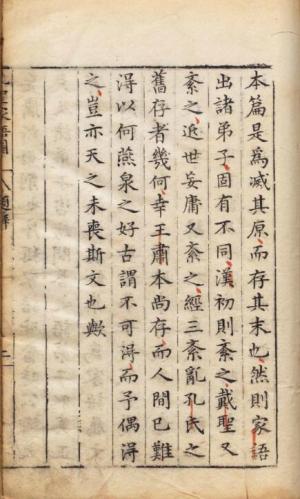 本篇是爲滅其原而存其末也然則家語
出諸弟子固有不同漢初則紊之戴聖又
紊之近世妄庸又紊之經三紊亂孔氏之
舊存者幾何幸王肅本尚存而人間已難
得以何燕泉之好古謂不可得而予偶得
之豈亦天之未喪斯文也歟